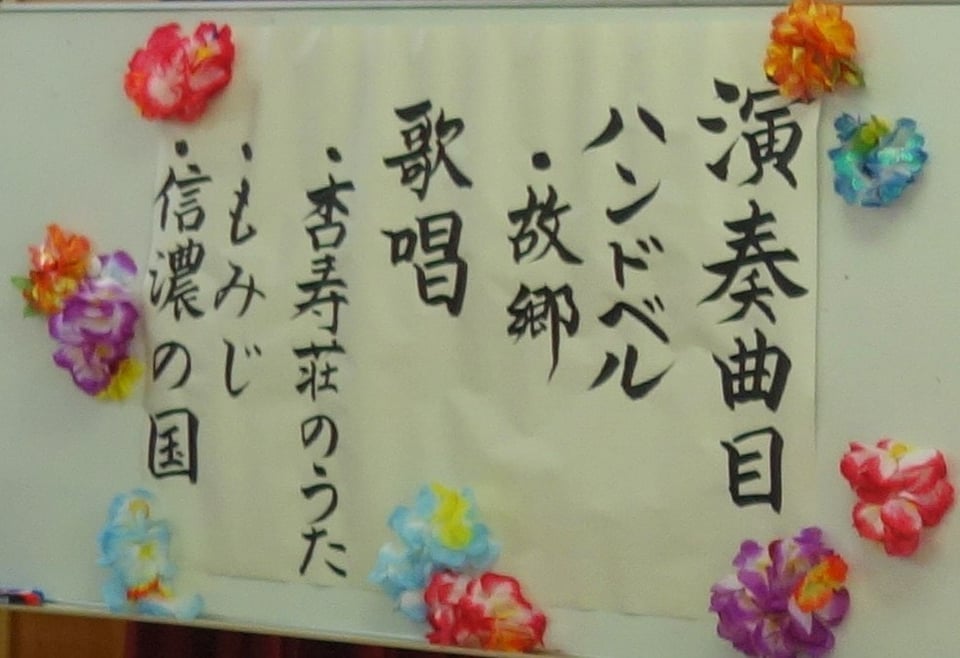 演奏曲目
ハンドベル
・故郷
歌唱
・杏寿荘のうた
・もみじ
・信濃の国